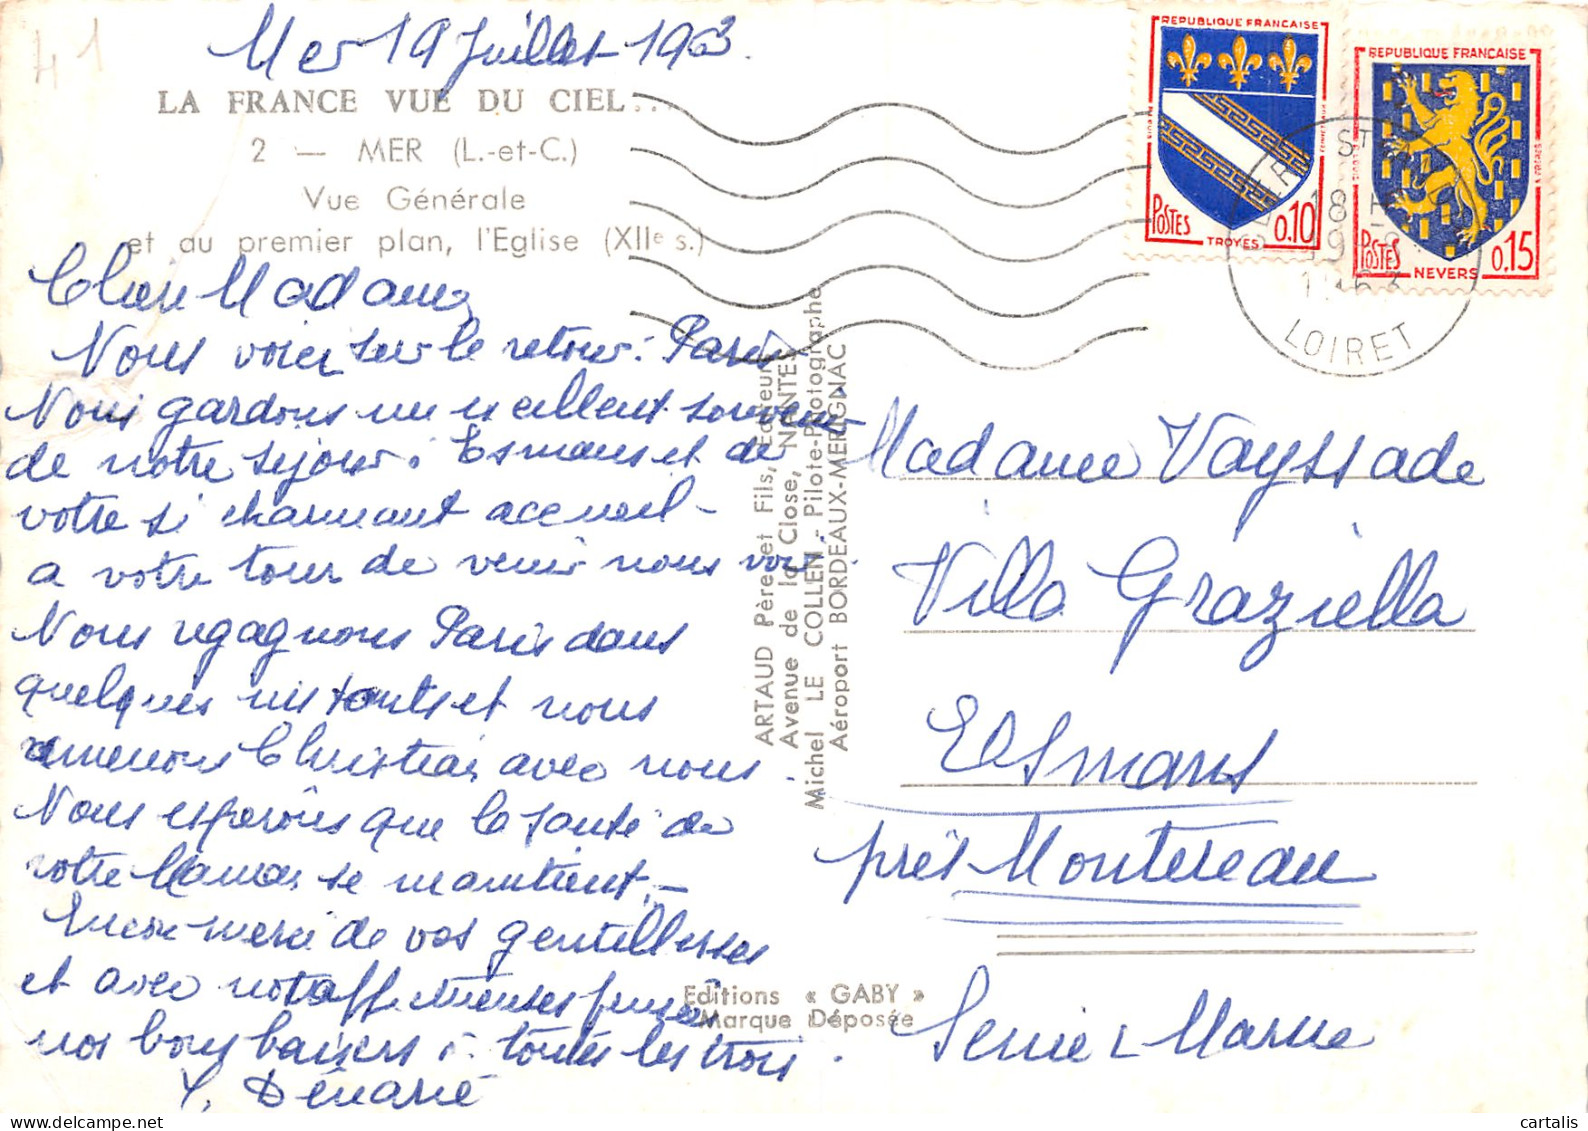 41
Mer 19 Juillet 1963.
LA FRANCE VUE DU CIEL...
2 — MER (L.-et-C.)
Vue Générale
et au premier plan, l'Eglise (XIIe s.)
Chère Madame
Nous voici sur le retour : Paris
Nous gardons un excellent souvenir
de notre séjour. Esmans et de
votre si charmant accueil -
a votre tour de venir nous voir.
Nous regagnons Paris dans
quelques instants et nous
ramenons Christian avec nous.
Nous espérons que la santé de
votre Maman se maintient. -
Encore merci de vos gentillesses
et avec nos affectueuses pensées
nos bons baisers à toutes les trois.
Y. Dénarié
ARTAUD Père et Fils, Editeurs
Avenue de la Close, NANTES
Michel LE COLLEN - Pilote-Photographe
Aéroport BORDEAUX-MERIGNAC
Editions « GABY »
Marque Déposée
REPUBLIQUE FRANÇAISE
POSTES
0,10
TROYES
REPUBLIQUE FRANÇAISE
POSTES
0,15
NEVERS
18 H
19
LOIRET
Madame Vayssade
Villa Graziella
Esmans
près Montereau
Seine & Marne
cartalis